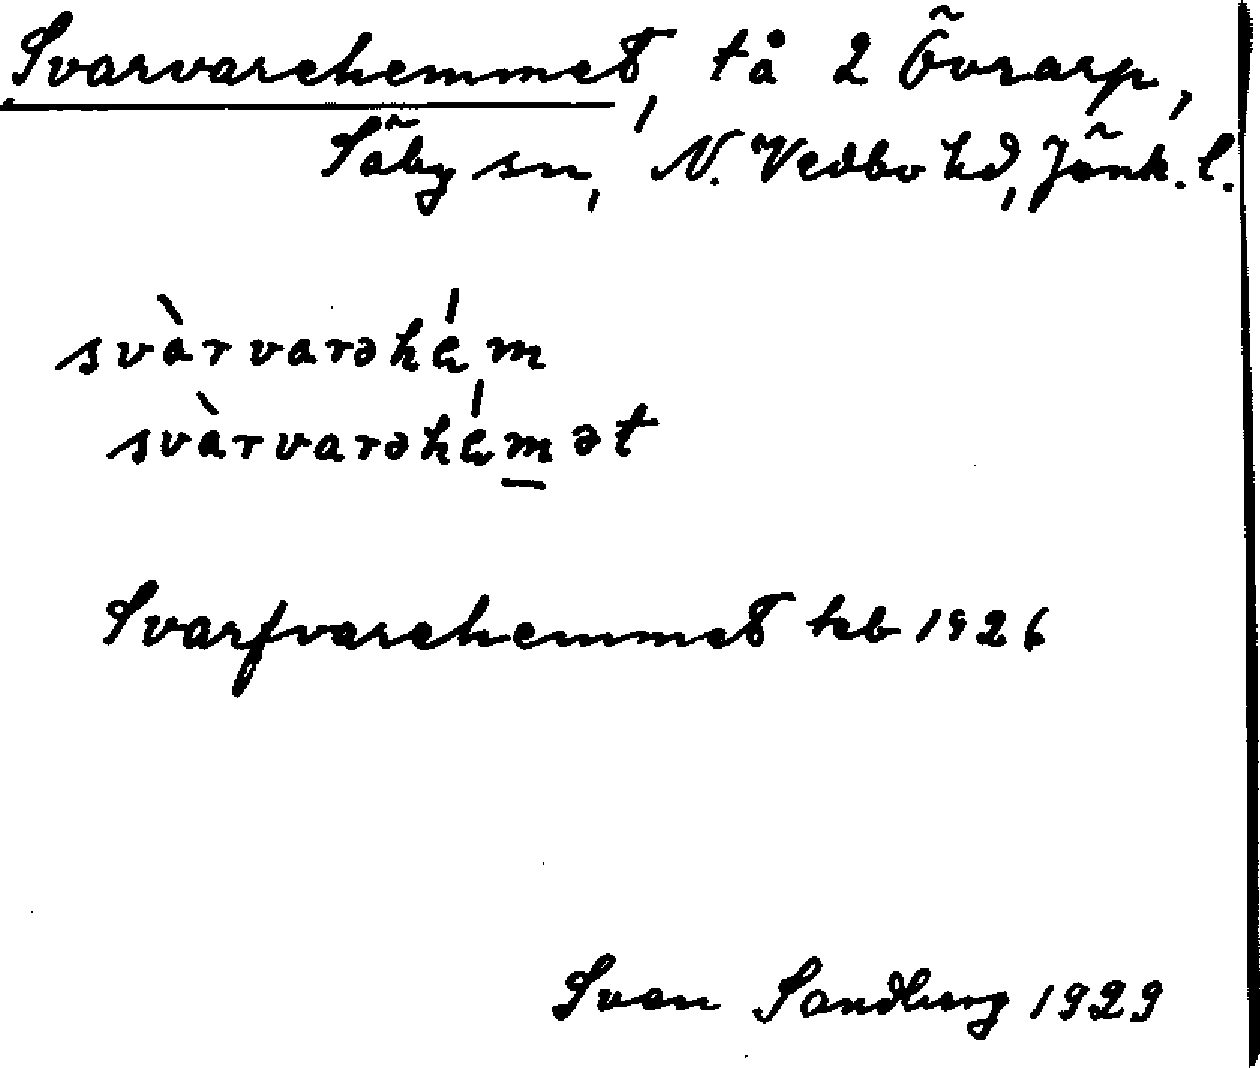 Svarvarehemmet, tå 2 Övrarp,
Säby sn, N. Vedbo hd, Jönk. l.
svàrvarəhém
svàrvarəhémət
Svarfvarehemmet kb 1926
Svan Sandberg 1929